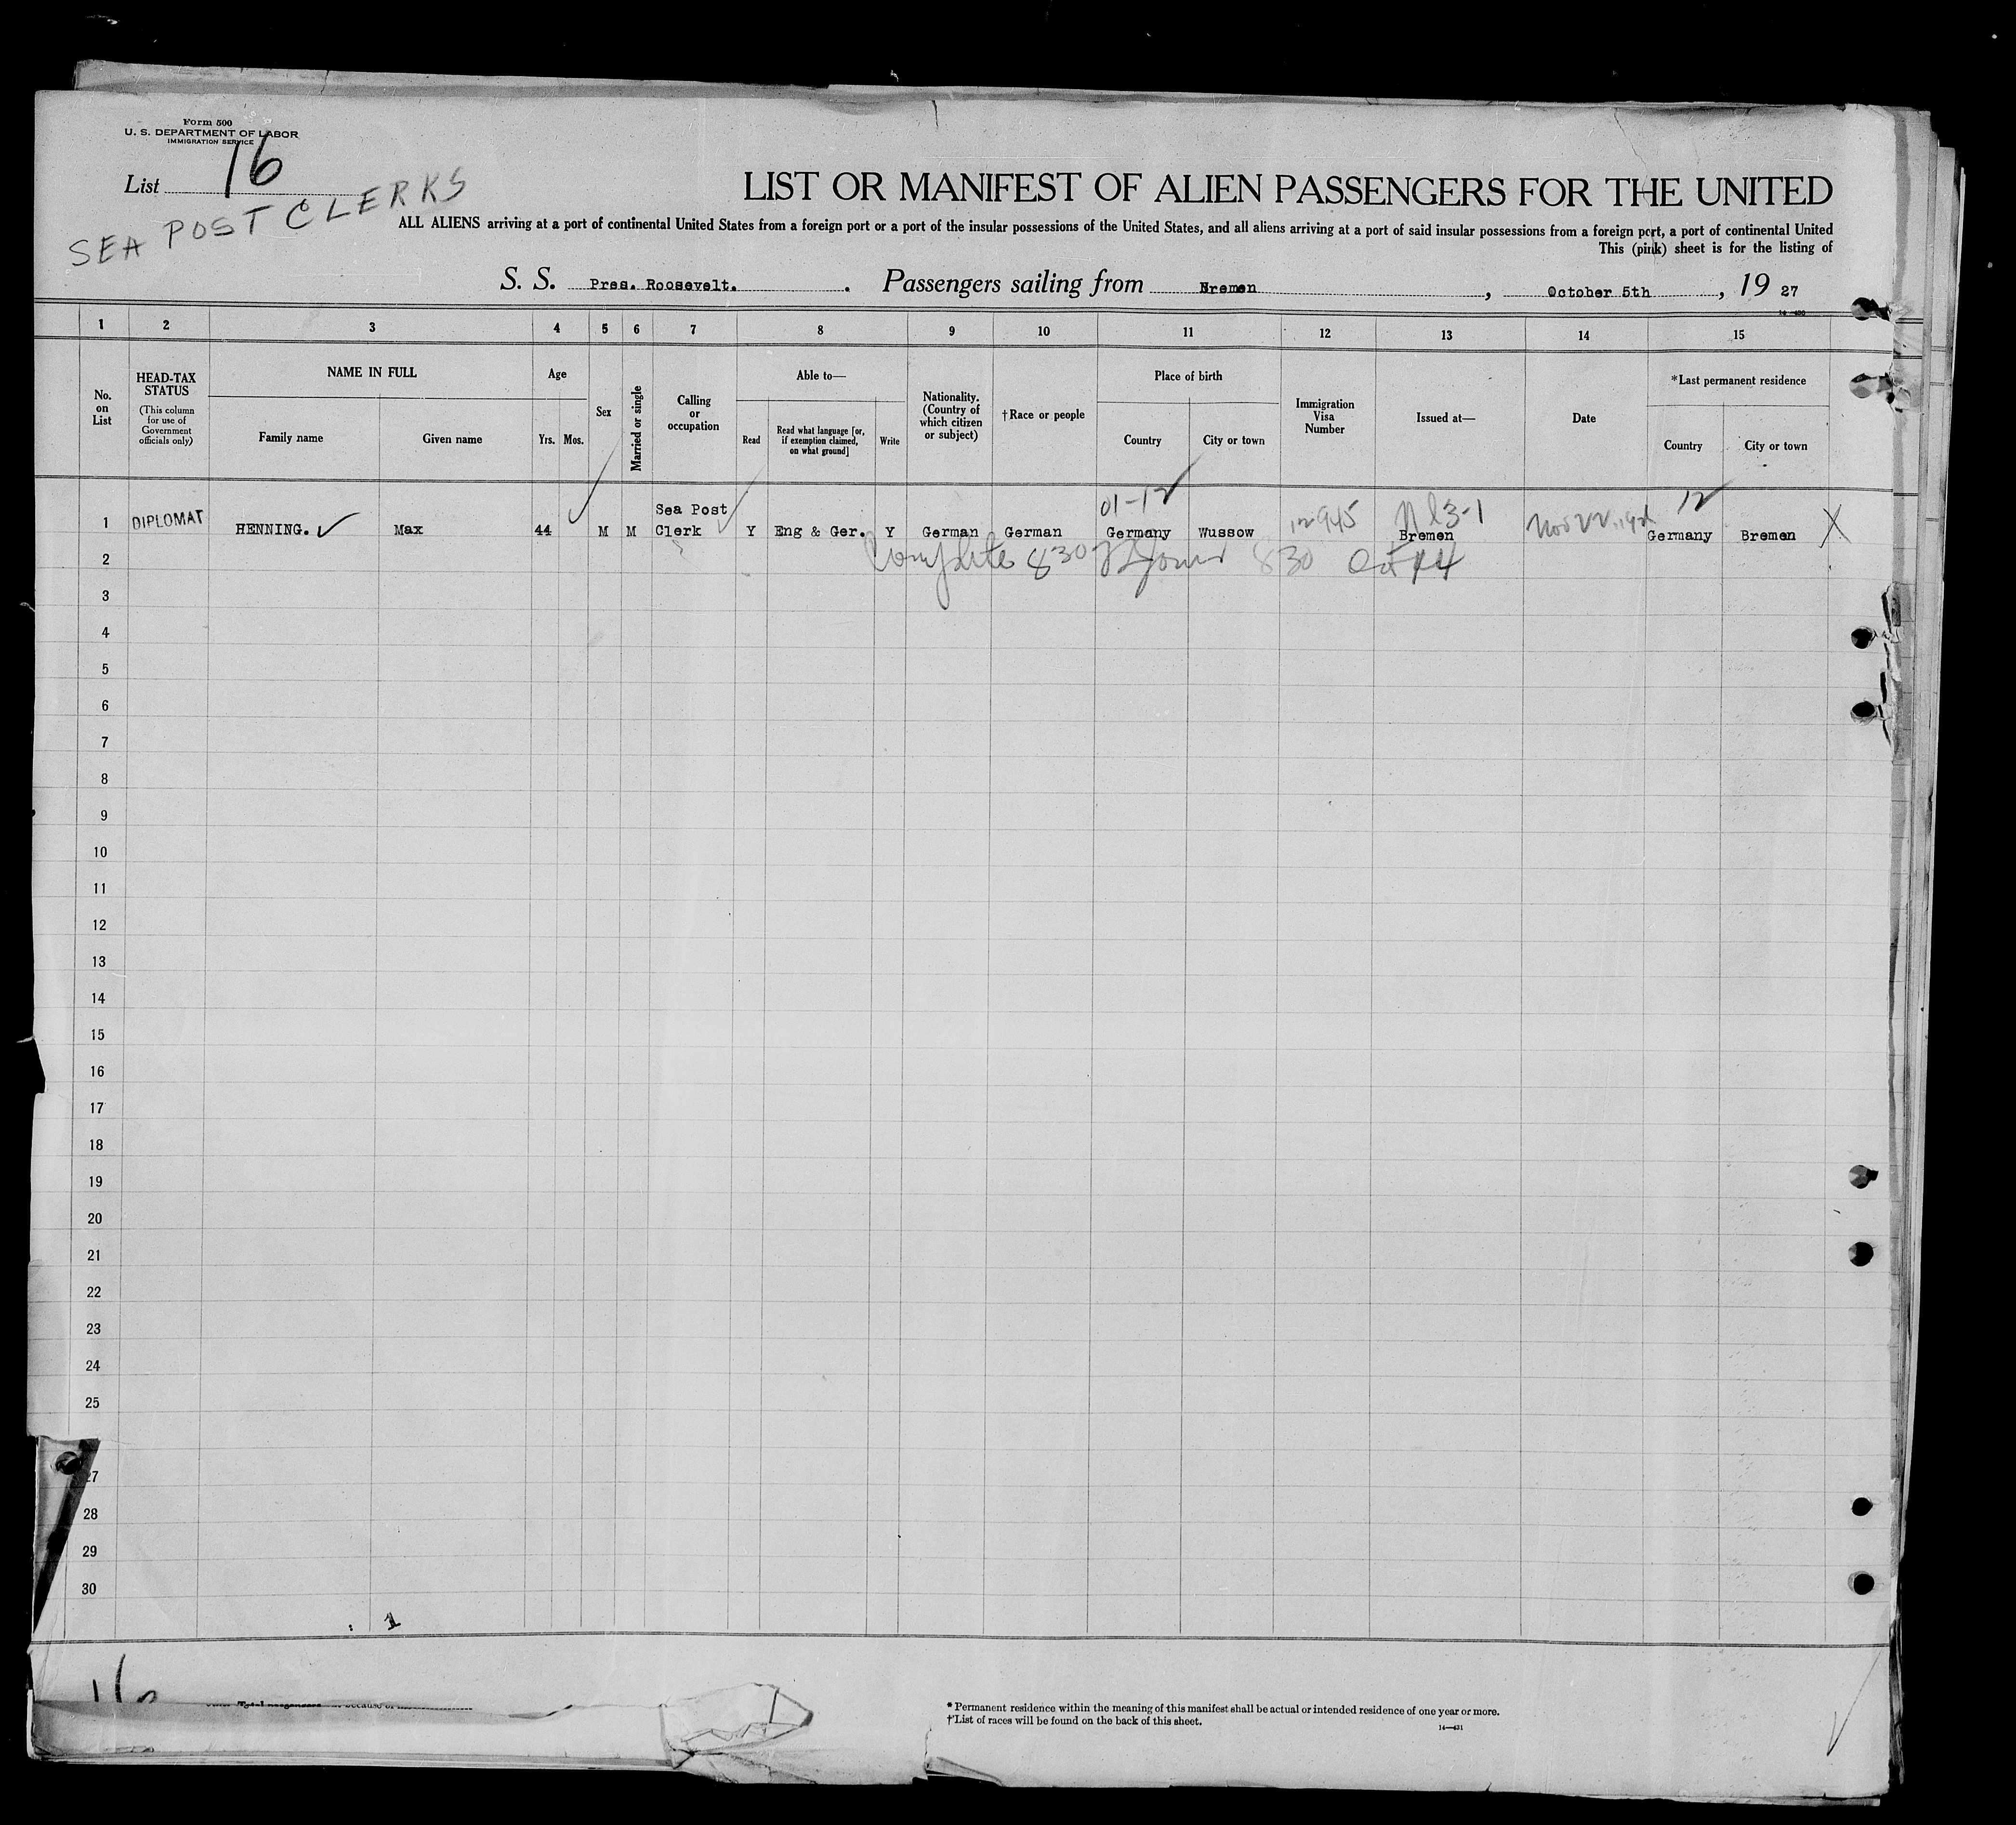 Form 500
U. S. DEPARTMENT OF LABOR
IMMIGRATION SERVICE
List 16
SEA POST CLERKS
LIST OR MANIFEST OF ALIEN PASSENGERS FOR THE UNITED
ALL ALIENS arriving at a port of continental United States from a foreign port or a port of the insular possessions of the United States, and all aliens arriving at a port of said insular possessions from a foreign port, a port of continental United
This (pink) sheet is for the listing of
S. S. Pres. Roosevelt. Passengers sailing from Bremen, October 5th, 19 27
1 2 3 4 5 6 7 8 9 10 11 12 13 14 15
No. on List
HEAD-TAX STATUS
(This column for use of Government officials only)
NAME IN FULL
Family name
Given name
Age
Yrs. Mos.
Sex
Married or single
Calling or occupation
Able to—
Read
Read what language [or, if exemption claimed, on what ground]
Write
Nationality. (Country of which citizen or subject)
†Race or people
Place of birth
Country
City or town
Immigration Visa Number
Issued at—
Date
*Last permanent residence
Country
City or town
01-12
12
1 DIPLOMAT HENNING. Max 44 M M Sea Post Clerk Y Eng & Ger. Y German German Germany Wussow 945 Bremen Germany Bremen X
2 830 830
3
4
5
6
7
8
9
10
11
12
13
14
15
16
17
18
19
20
21
22
23
24
25
27
28
29
30
1
16
Total passengers
* Permanent residence within the meaning of this manifest shall be actual or intended residence of one year or more.
† List of races will be found on the back of this sheet.
14—431